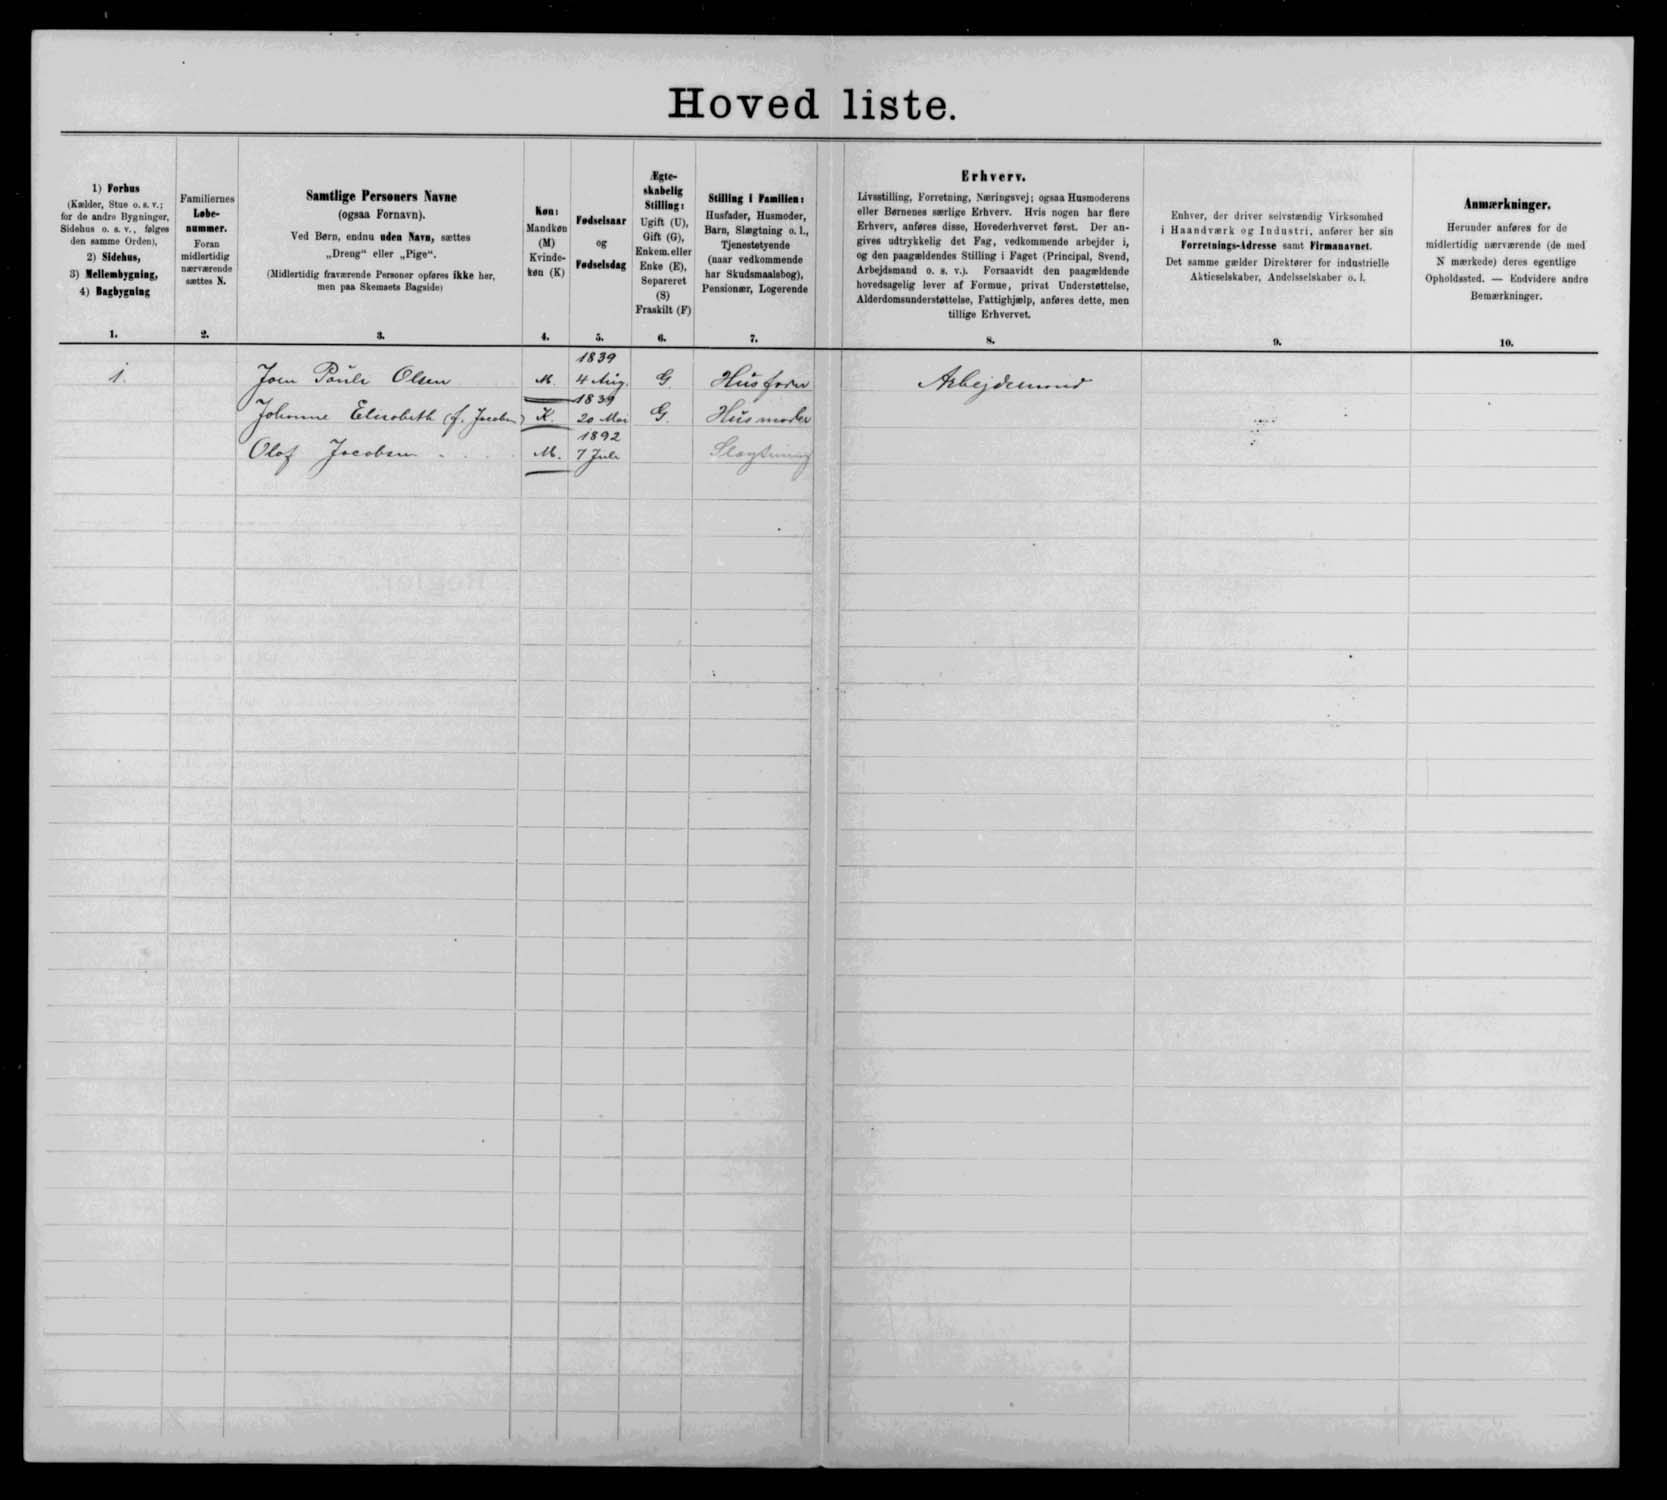 Hoved liste.
1) Forhus
(Kælder, Stue o. s. v.;
for de andre Bygninger,
Sidehus o. s. v., følges
den samme Orden),
2) Sidehus,
3) Mellembygning,
4) Bagbygning
1.
Familiernes
Løbe-
nummer.
Foran
midlertidig
nærværende
sættes N.
2.
Samtlige Personers Navne
(ogsaa Fornavn).
Ved Børn, endnu uden Navn, sættes
„Dreng“ eller „Pige“.
(Midlertidig fraværende Personer opføres ikke her,
men paa Skemaets Bagside)
3.
Køn:
Mandkøn
(M)
Kvinde-
køn (K)
4.
Fødselsaar
og
Fødselsdag
5.
Ægte-
skabelig
Stilling:
Ugift (U),
Gift (G),
Enkem. eller
Enke (E),
Separeret
(S)
Fraskilt (F)
6.
Stilling i Familien:
Husfader, Husmoder,
Barn, Slægtning o. l.,
Tjenestetyende
(naar vedkommende
har Skudsmaalsbog),
Pensionær, Logerende
7.
Erhverv.
Livsstilling, Forretning, Næringsvej; ogsaa Husmoderens
eller Børnenes særlige Erhverv. Hvis nogen har flere
Erhverv, anføres disse, Hovederhvervet først. Der an-
gives udtrykkelig det Fag, vedkommende arbejder i,
og den paagældendes Stilling i Faget (Principal, Svend,
Arbejdsmand o. s. v.). Forsaavidt den paagældende
hovedsagelig lever af Formue, privat Understøttelse,
Alderdomsunderstøttelse, Fattighjælp, anføres dette, men
tillige Erhvervet.
8.
Enhver, der driver selvstændig Virksomhed
i Haandværk og Industri, anfører her sin
Forretnings-Adresse samt Firmanavnet.
Det samme gælder Direktører for industrielle
Aktieselskaber, Andelsselskaber o. l.
9.
Anmærkninger.
Herunder anføres for de
midlertidig nærværende (de med
N mærkede) deres egentlige
Opholdssted. — Endvidere andre
Bemærkninger.
10.
1. Joen Poule Olsen M. 1839 4 Aug. G. Husfader Arbejdsmand
Johanne Elisabeth (f. Jacobsen) K. 1839 20 Mai G. Husmoder
Olaf Jacobsen M. 1892 7 Juli Slægtning